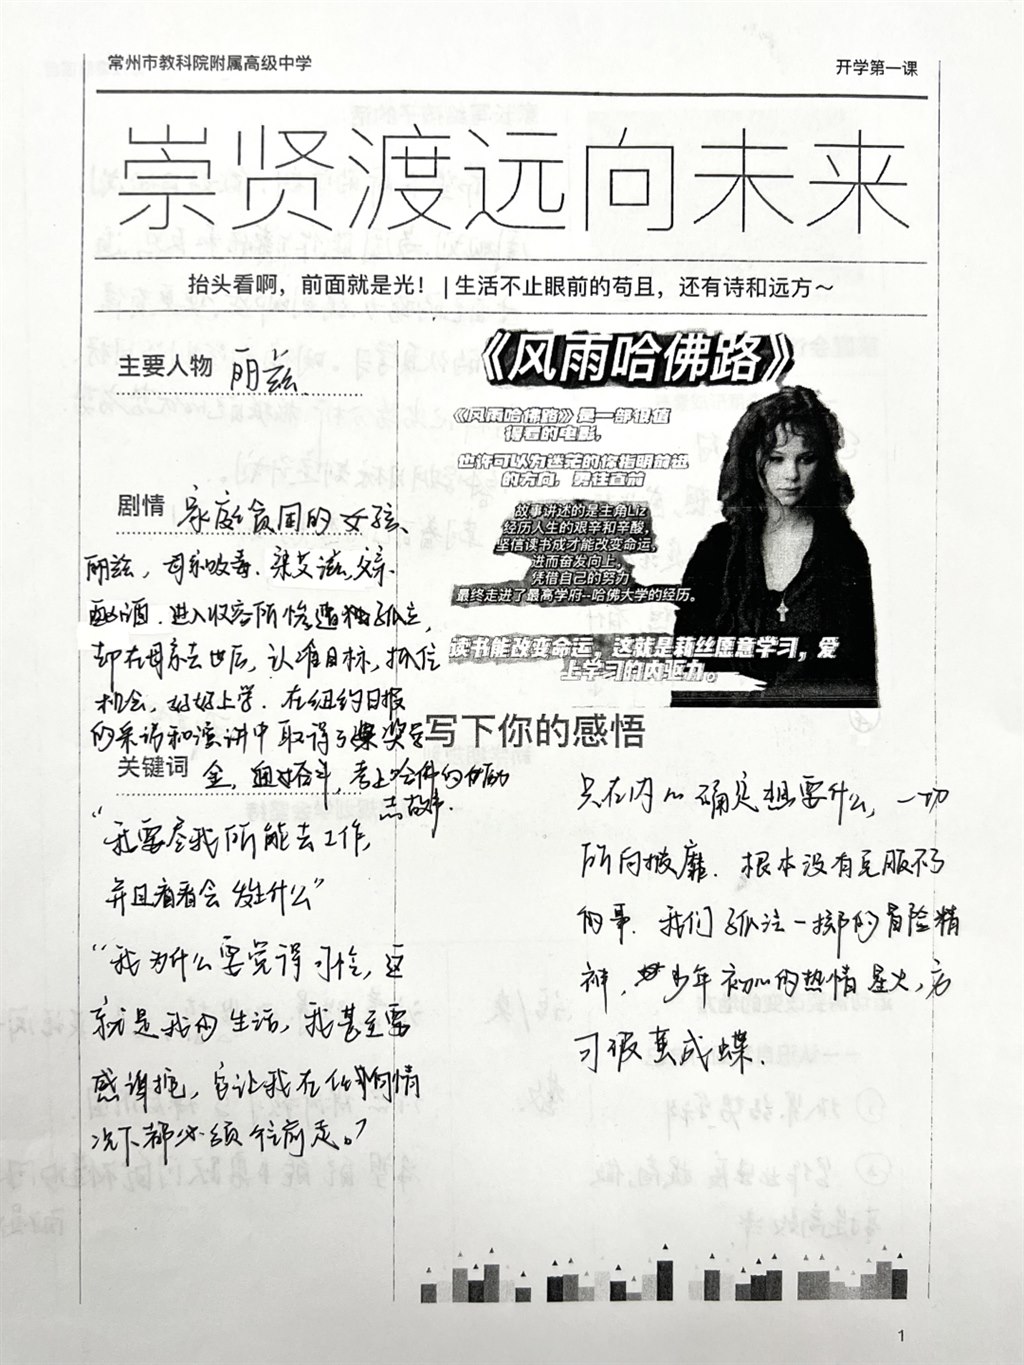 常州市教科院附属高级中学
开学第一课
崇贤渡远向未来
抬头看啊，前面就是光！ | 生活不止眼前的苟且，还有诗和远方～
主要人物 丽兹
《风雨哈佛路》
《风雨哈佛路》是一部很值
得看的电影，
也许可以为迷茫的你指明前进
的方向，勇往直前
故事讲述的是主角Liz
经历人生的艰辛和辛酸，
坚信读书成才能改变命运，
进而奋发向上，
凭借自己的努力
最终走进了最高学府--哈佛大学的经历。
读书能改变命运，这就是莉丝愿意学习，爱
上学习的内驱力。
剧情 家庭贫困的女孩、
丽兹，母亲吸毒、染艾滋，父亲
酗酒．进入收容所惨遭孤立，
却在母亲去世后，认准目标，抓住
机会，好好上学．在纽约日报
的采访和演讲中取得了奖学
金，考上哈佛的励
志故事．
关键词
“我要尽我所能去工作，
并且看看会发生什么”
“我为什么要觉得可怜，这
就是我的生活，我甚至要
感谢它，它让我在任何情
况下都必须往前走。”
写下你的感悟
只在内心确定想要什么，一切
所向披靡．根本没有克服不了
的事．我们孤注一掷的冒险精
神，少年初心的热情星火，方
可破茧成蝶．
1